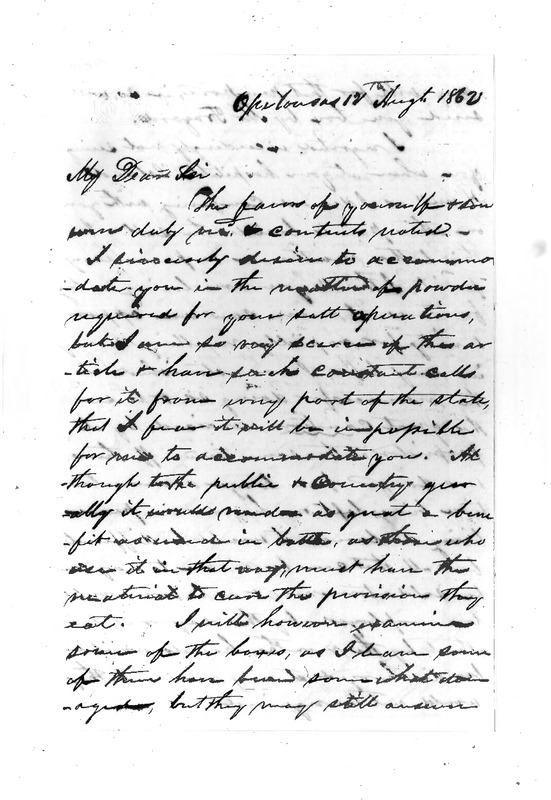 Opelousas 12th Augt 1862
My Dear Sir
The favors of yourself & son
were duly recd. & contents noted.
I sincerely desire to accommo
-date you in the matter of powder
required for your salt operations,
but I am so very scarce of this ar
-ticle & have such constant calls
for it from every part of the state,
that I fear it will be impossible
for me to accommodate you. Al
-though to the public & Country gener
-ally it would render as great a bene
-fit as used in battle, as those who
use it in that way, must have the
material to cure the provision they
eat. I will however examine
some of the boxes, as I learn some
of them have been somewhat dam
-aged, but they may still answer